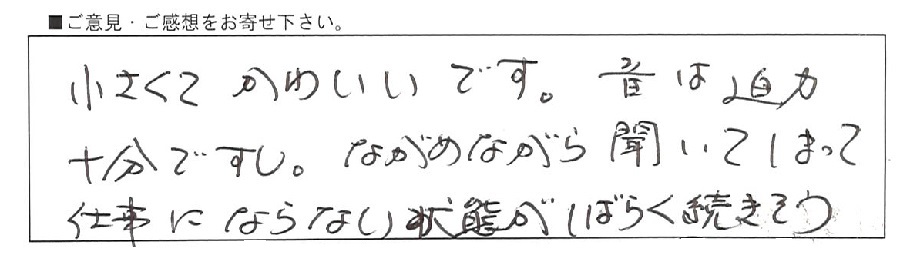 ■ご意見・ご感想をお寄せ下さい。
小さくて かわいいです。音は迫力
十分ですし。ながめながら聞いてしまって
仕事にならない状態がしばらく続きそう